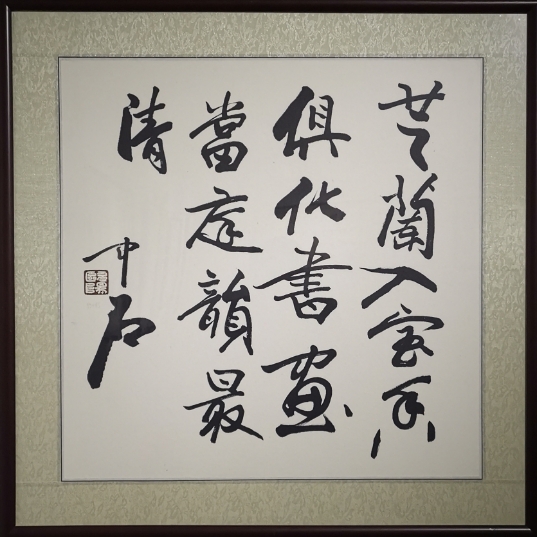 芝蘭入室香
俱化書畫
當庭韻最
清
中石